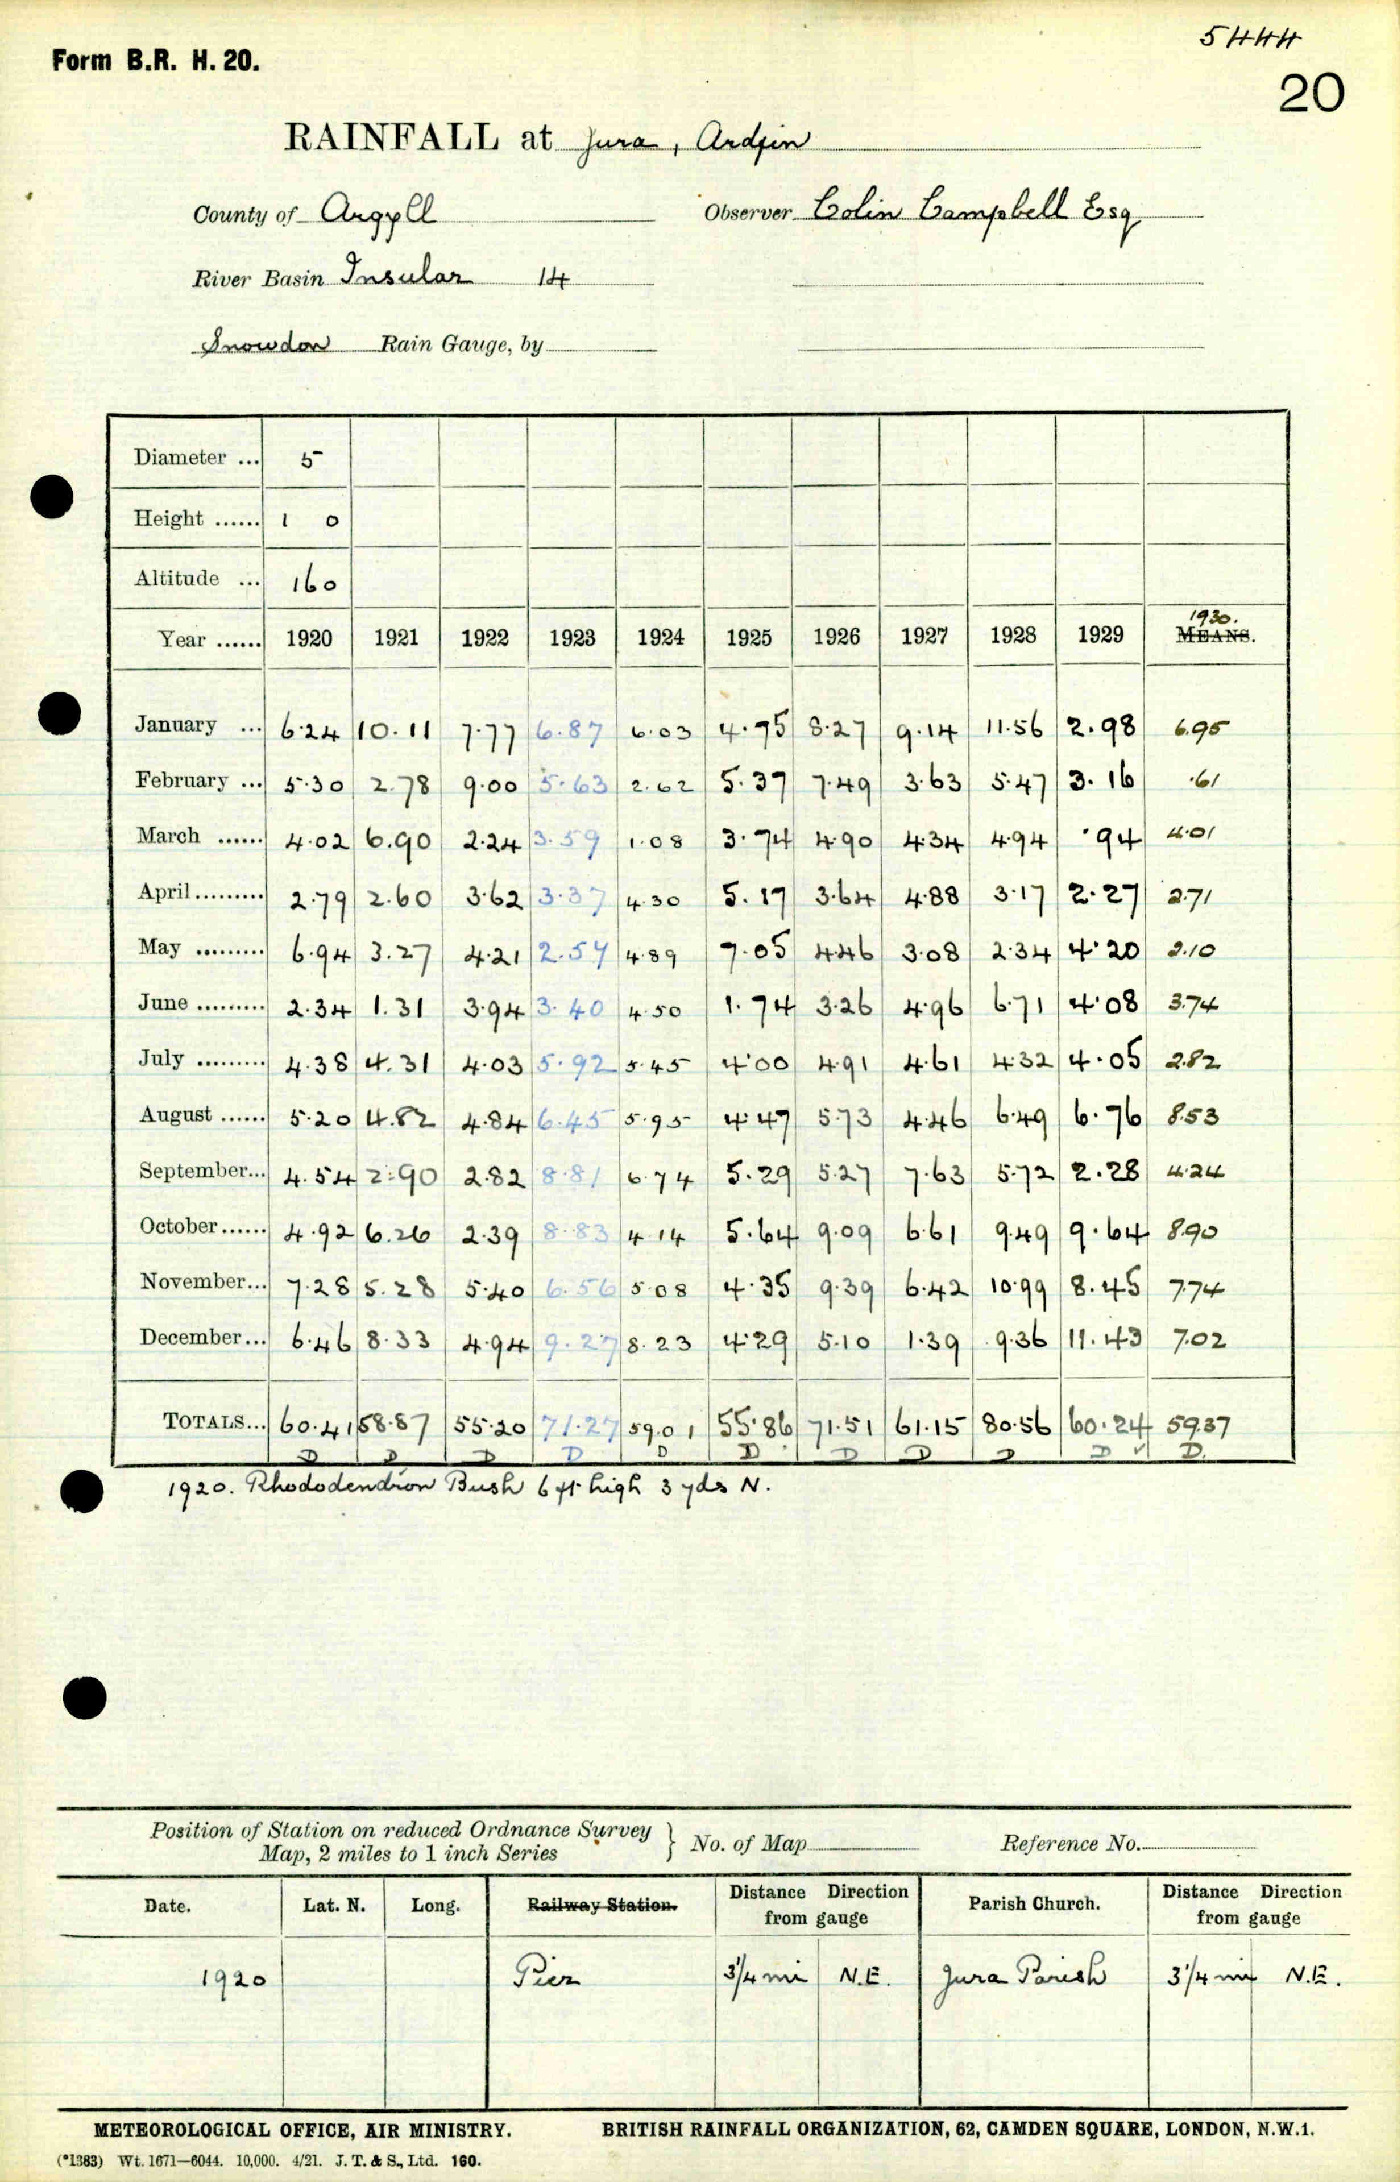 5444
Form B.R. H. 20.
20
RAINFALL at Jura, Ardfin
County of Argyll Observer Colin Campbell Esq
River Basin Insular 14
Snowdon Rain Gauge, by
Diameter ... 5
Height ...... 1 0
Altitude ... 160
1930.
Year ...... 1920 1921 1922 1923 1924 1925 1926 1927 1928 1929 MEANS.
January ... 6.24 10.11 7.77 6.87 6.03 4.75 8.27 9.14 11.56 2.98 6.95
February ... 5.30 2.78 9.00 5.63 2.62 5.37 7.49 3.63 5.47 3.16 .61
March ...... 4.02 6.90 2.24 3.59 1.08 3.74 4.90 4.34 4.94 .94 4.01
April ......... 2.79 2.60 3.62 3.37 4.30 5.17 3.64 4.88 3.17 2.27 2.71
May ......... 6.94 3.27 4.21 2.57 4.89 7.05 4.46 3.08 2.34 4.20 2.10
June ......... 2.34 1.31 3.94 3.40 4.50 1.74 3.26 4.96 6.71 4.08 3.74
July ......... 4.38 4.31 4.03 5.92 5.45 4.00 4.91 4.61 4.32 4.05 2.82
August ...... 5.20 4.82 4.84 6.45 5.95 4.47 5.73 4.46 6.49 6.76 8.53
September... 4.54 2.90 2.82 8.81 6.74 5.29 5.27 7.63 5.72 2.28 4.24
October...... 4.92 6.26 2.39 8.83 4.14 5.64 9.09 6.61 9.49 9.64 8.90
November... 7.28 5.28 5.40 6.56 5.08 4.35 9.39 6.42 10.99 8.45 7.74
December... 6.46 8.33 4.94 9.27 8.23 4.29 5.10 1.39 9.36 11.43 7.02
TOTALS... 60.41 58.87 55.20 71.27 59.01 55.86 71.51 61.15 80.56 60.24 59.37
D D D D D D D D D D ✓ D
1920. Rhododendron Bush 6 ft high 3 yds N.
Position of Station on reduced Ordnance Survey
Map, 2 miles to 1 inch Series } No. of Map Reference No.
Date. Lat. N. Long. Railway Station. Distance Direction from gauge Parish Church. Distance Direction from gauge
1920 Pier 3/4 mi N.E. Jura Parish 3 1/4 mi N.E.
METEOROLOGICAL OFFICE, AIR MINISTRY. BRITISH RAINFALL ORGANIZATION, 62, CAMDEN SQUARE, LONDON, N.W.1.
(*1383) Wt. 1671—6044. 10,000. 4/21. J. T. & S., Ltd. 160.